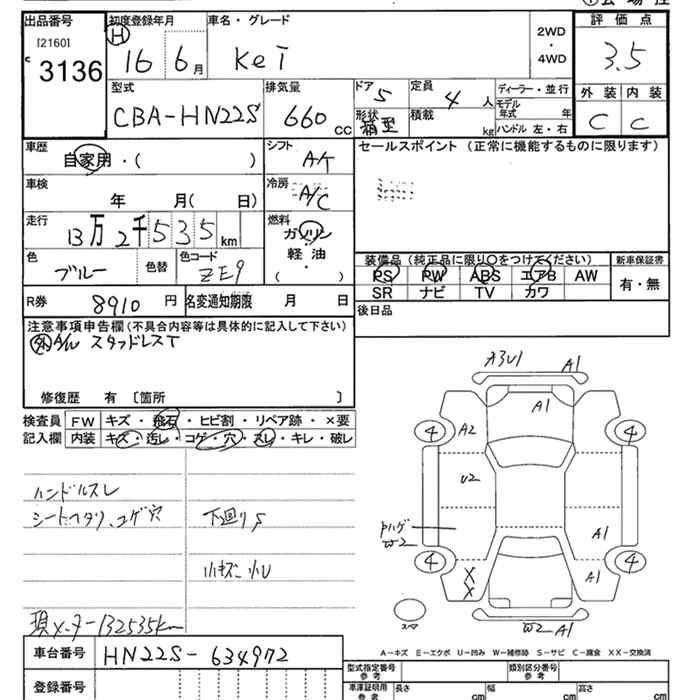 出品番号 初度登録年月 車名・グレード 2WD・4WD 評価点
[2160] C 3136 H 16 6月 Kei 3.5
型式 排気量 ドア 定員 ディーラー・並行 外装 内装
CBA-HN22S 660cc 5 4人 モデル年式 年 C C
形状 箱型 積載 kg ハンドル 左・右
車歴 自家用・( ) シフト A/T セールスポイント (正常に機能するものに限ります)
車検 年 月( 日) 冷房 A/C
走行 13万2千535km 燃料 ガソリン 軽油 ( )
色 ブルー 色替 色コード ZE9
装備品 (純正品に限り○をつけてください) 新車保証書
PS PW ABS エアB AW 有・無
SR ナビ TV カワ
R券 8910円 名変通知期限 月 日 後日品
注意事項申告欄(不具合内容等は具体的に記入して下さい)
外A/W スタッドレスT
修復歴 有 〔箇所 〕
検査員 FW キズ・飛石・ヒビ割・リペア跡・×要
記入欄 内装 キズ・汚レ・コゲ・穴・スレ・キレ・破レ
ハンドルスレ
シートヘタリ、コゲ穴 下廻りS
小キズ 小U
現メーター132535km
A3U1 A1
A1
4 A2 4
U2
Pハゲ
W2 A1
4 XX A1 4
スマ W2 A1
A−キズ E−エクボ U−凹み W−補修跡 S−サビ C−腐食 XX−交換済
車台番号 HN22S-634972
登録番号
型式指定番号 参考 類別区分番号 参考
車庫証明用 参考 長さ cm 幅 cm 高さ cm